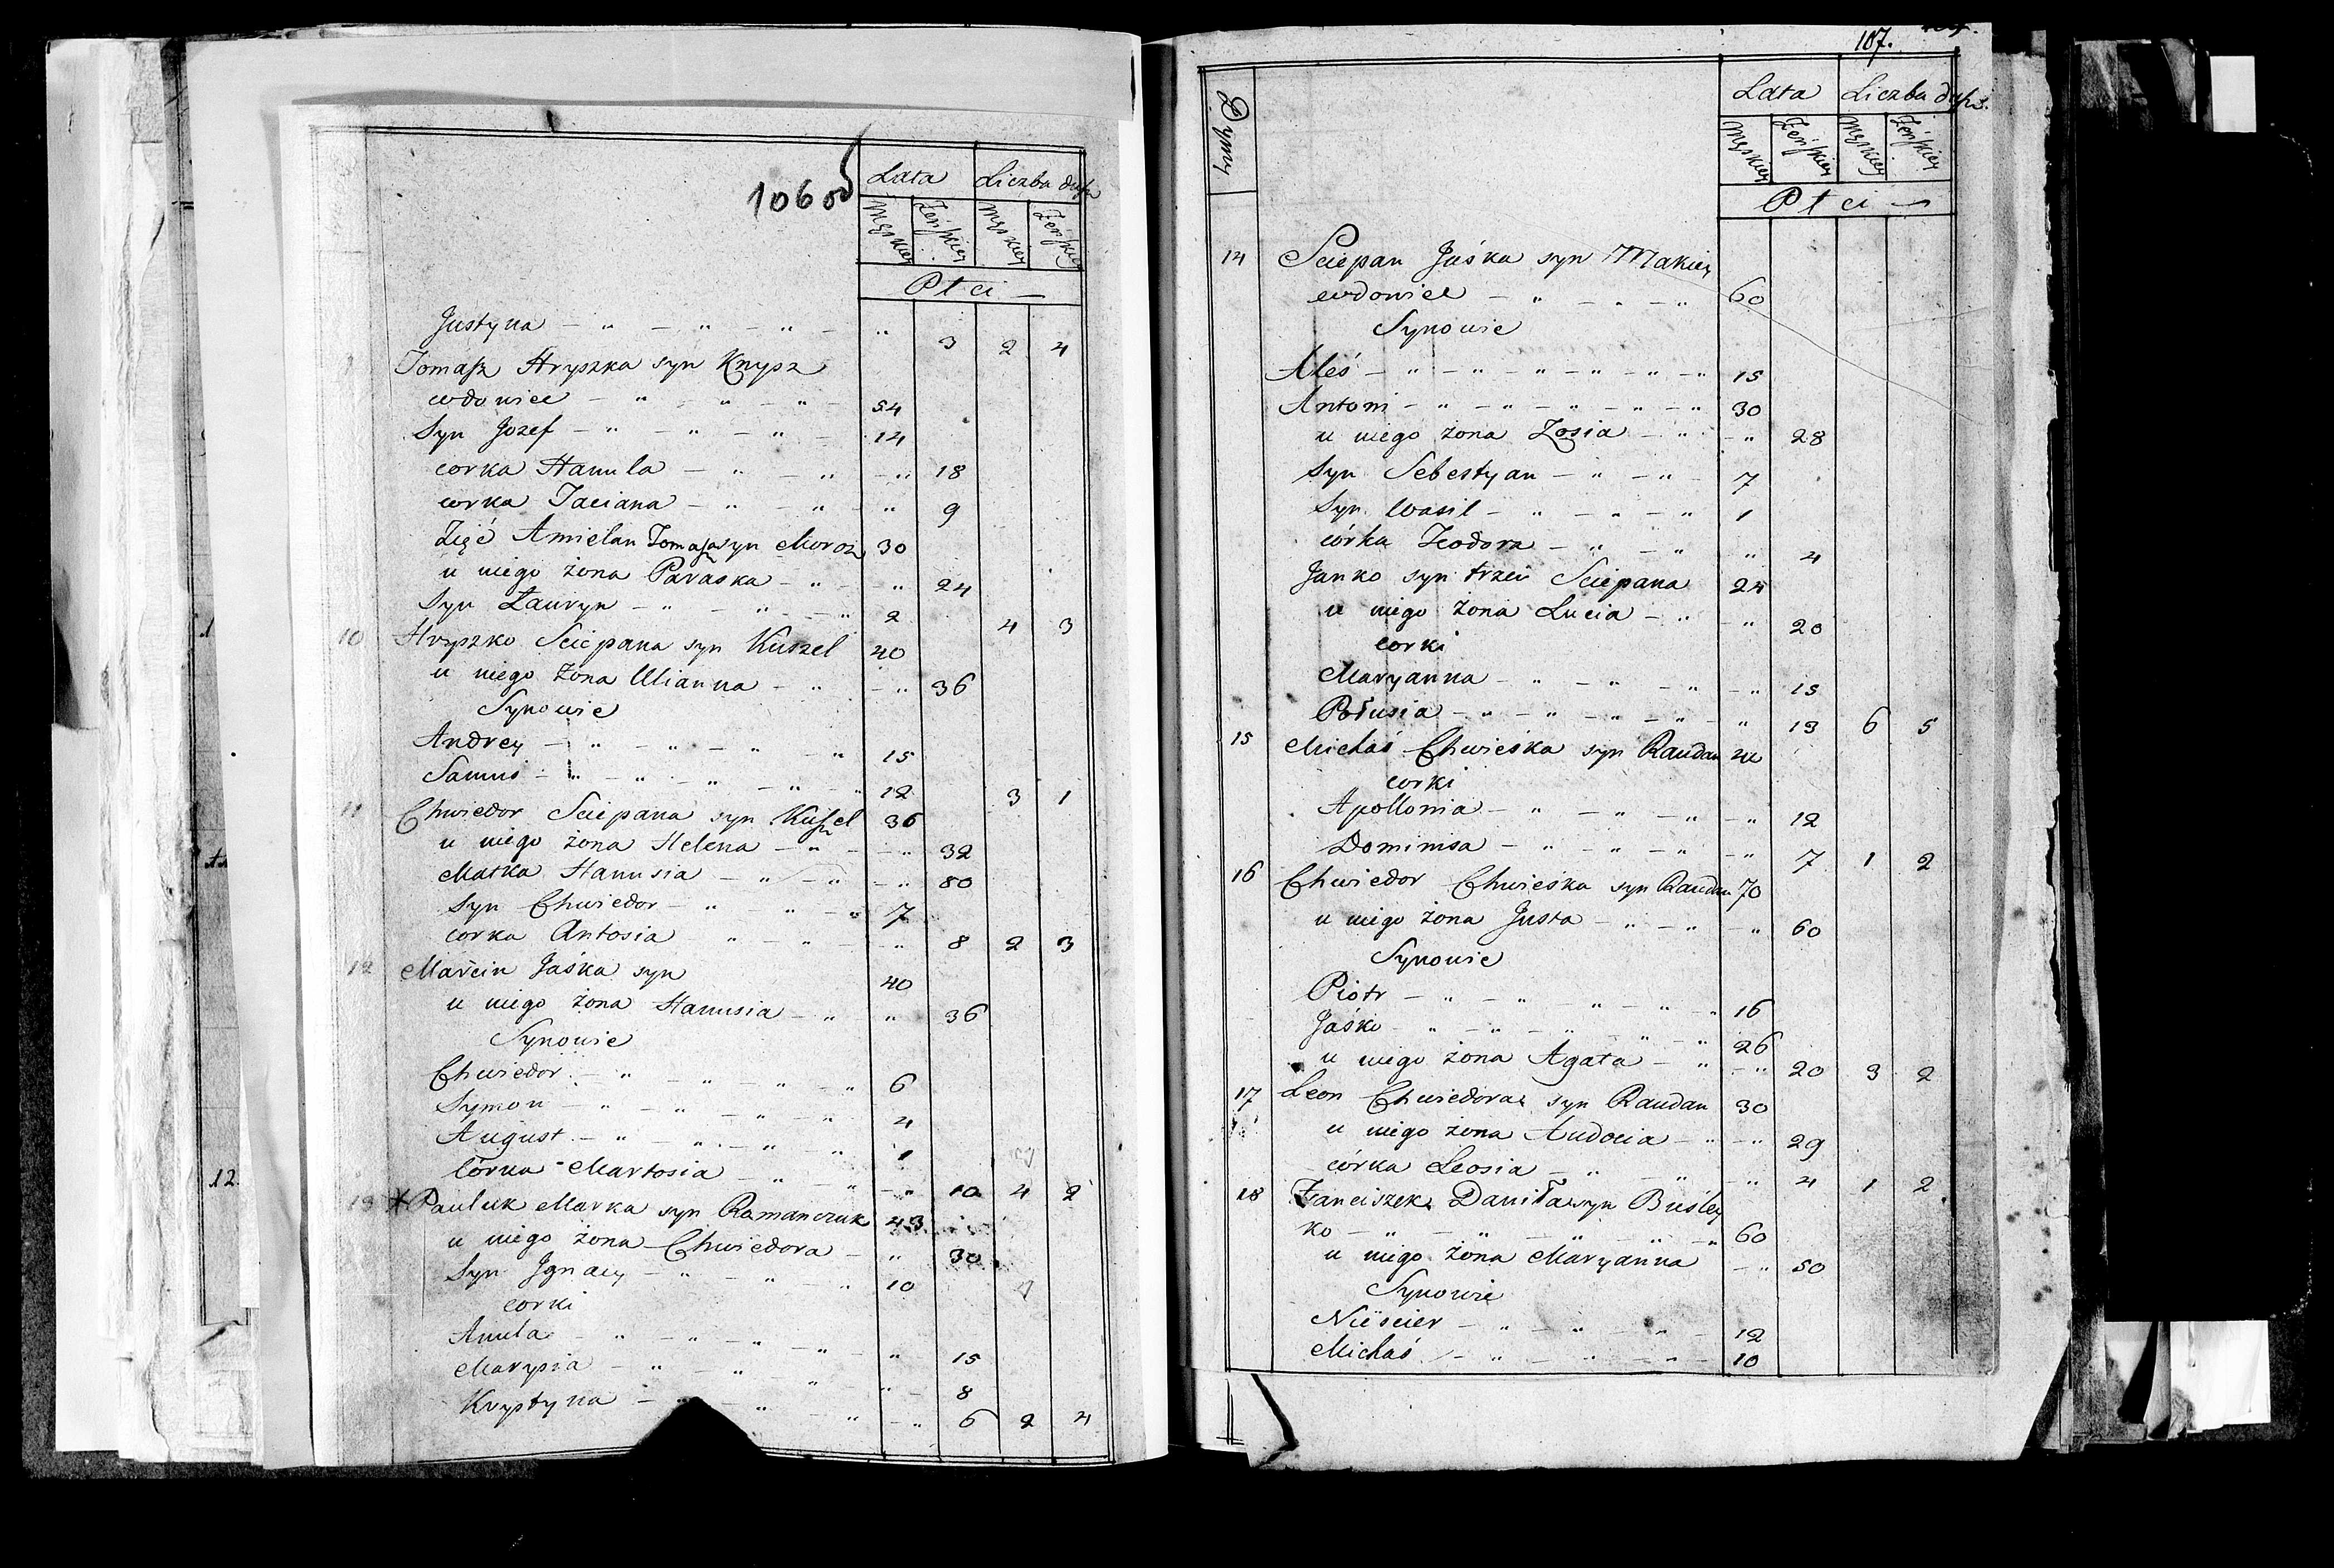 106 об
Lata Liczba dusz
Męskiey Żeńskiey Męskiey Żeńskiey
Płci
Justyna — " — " — " — " 3 2 4
Tomasz Hryszka syn Knysz
wdowiec — " — " — " — 54
Syn Jozef — " — " — " — 14
corka Hanula — " — " — " 18
corka Taciana — " — " — " 9
Zięć Amielan Tomasza syn Moroz 30
u niego żona Paraska — " — " 24
Syn Łauryn — " — " — " 2 4 3
10 Hryszko Sciepana syn Kuszel 40
u niego żona Ulianna — " — " 36
Synowie
Andrey — " — " — " — " 15
Samuś — " — " — " — " — " 12 3 1
11 Chwiedor Sciepana syn Kuszel 36
u niego żona Helena — " — " 32
Matka Hanusia — " — " — " 80
Syn Chwiedor — " — " — " 7
corka Antosia " — " — " 8 2 3
12 Marcin Jaśka syn 40
u niego żona Hanusia — " " 36
Synowie
Chwiedor — " — " — " — " 6
Symon — " — " — " — " 4
August — " — " — " — " 1
Córka Martosia — " — " — " 10 4 2
13 Pauluk Marka syn Ramanczuk 43
u niego żona Chwiedora — " 30
Syn Jgnacy — " — " — " 10
corki
Anula — " — " — " — " — " 15
Marysia — " — " — " — " 8
Krystyna — " — " — " — " 6 2 4
107.
Dymy
Lata Liczba dusz.
Męskiey Żeńskiey Męskiey Żeńskiey
Płci
14 Sciepan Jaśka syn Makiey
wdowiec — " — " — " 60
Synowie
Aleś — " — " — " — " — " — " 15
Antoni — " — " — " — " — " 30
u niego żona Zosia — " — " 28
Syn Sebestyan — " — " — 7
Syn Wasil — " — " — " 1
córka Teodora — " — " " 4
Janko syn trzeci Sciepana 24
u niego żona Lucia — " — " 20
corki
Maryanna — " — " — " — " 15
Połusia — " — " — " — " — " 13 6 5
15 Michaś Chwieśka syn Raudan 40
corki
Apollonia — " — " — " — " 12
Dominisa — " — " — " — " 7 1 2
16 Chwiedor Chwieśka syn Raudan 70
u niego żona Justa — " — " — " 60
Synowie
Piotr — " — " — " — " — " 16
Jaśko — " — " — " — " — " 26
u niego żona Agata — " — " 20 3 2
17 Leon Chwiedora syn Raudan 30
u niego żona Audocia — " — " 29
córka Leosia — " — " — " 4 1 2
18 Franciszek Daniła syn Buśley
ko — " — " — " — " — " 60
u niego żona Maryanna — " 50
Synowie
Nieścier — " — " — " — 12
Michaś — " — " — " — 10
12